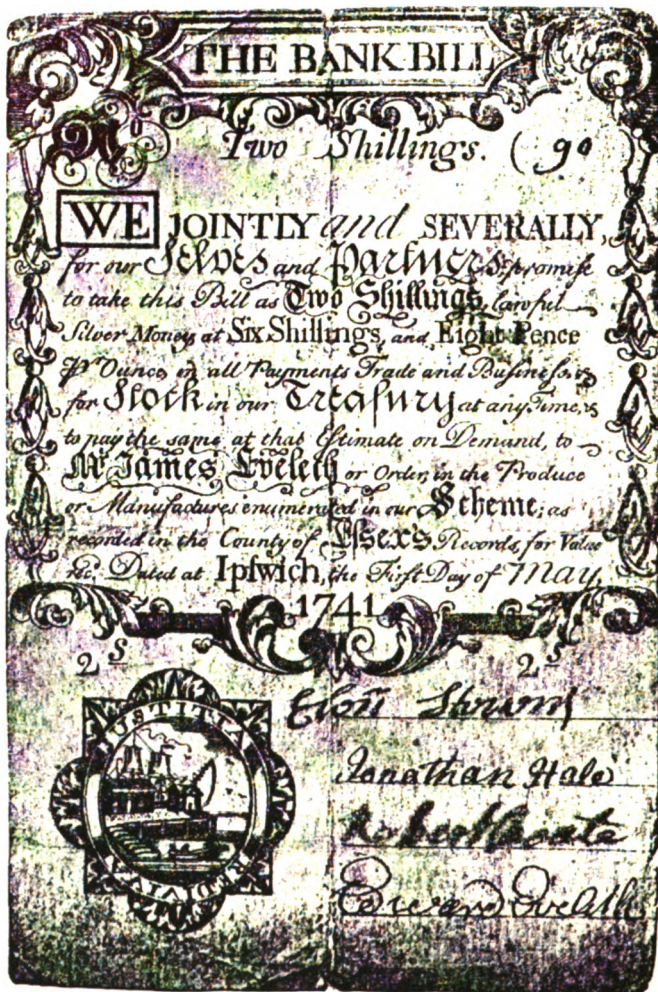 THE BANK BILL
No
Two Shillings. ( 90
WE JOINTLY and SEVERALLY,
for our Selves and Partners, promise
to take this Bill as Two Shillings, lawful
Silver Money, at Six Shillings, and Eight Pence
Ounce, in all Payments Trade and Business, &
for Stock in our Treasury at any Time, &
to pay the same at that Estimate on Demand, to
Mr James Eveleth or Order, in the Produce
or Manufactures enumerated in our Scheme; as
recorded in the County of Essex's Records, for Value
&c. Dated at Ipswich, the First Day of May,
1741
2 S 2 S
JUSTITIA
Jonathan Hale
Edward Eveleth